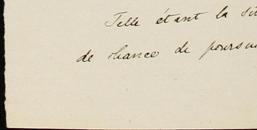 Telle étant la si
de chance de poursu